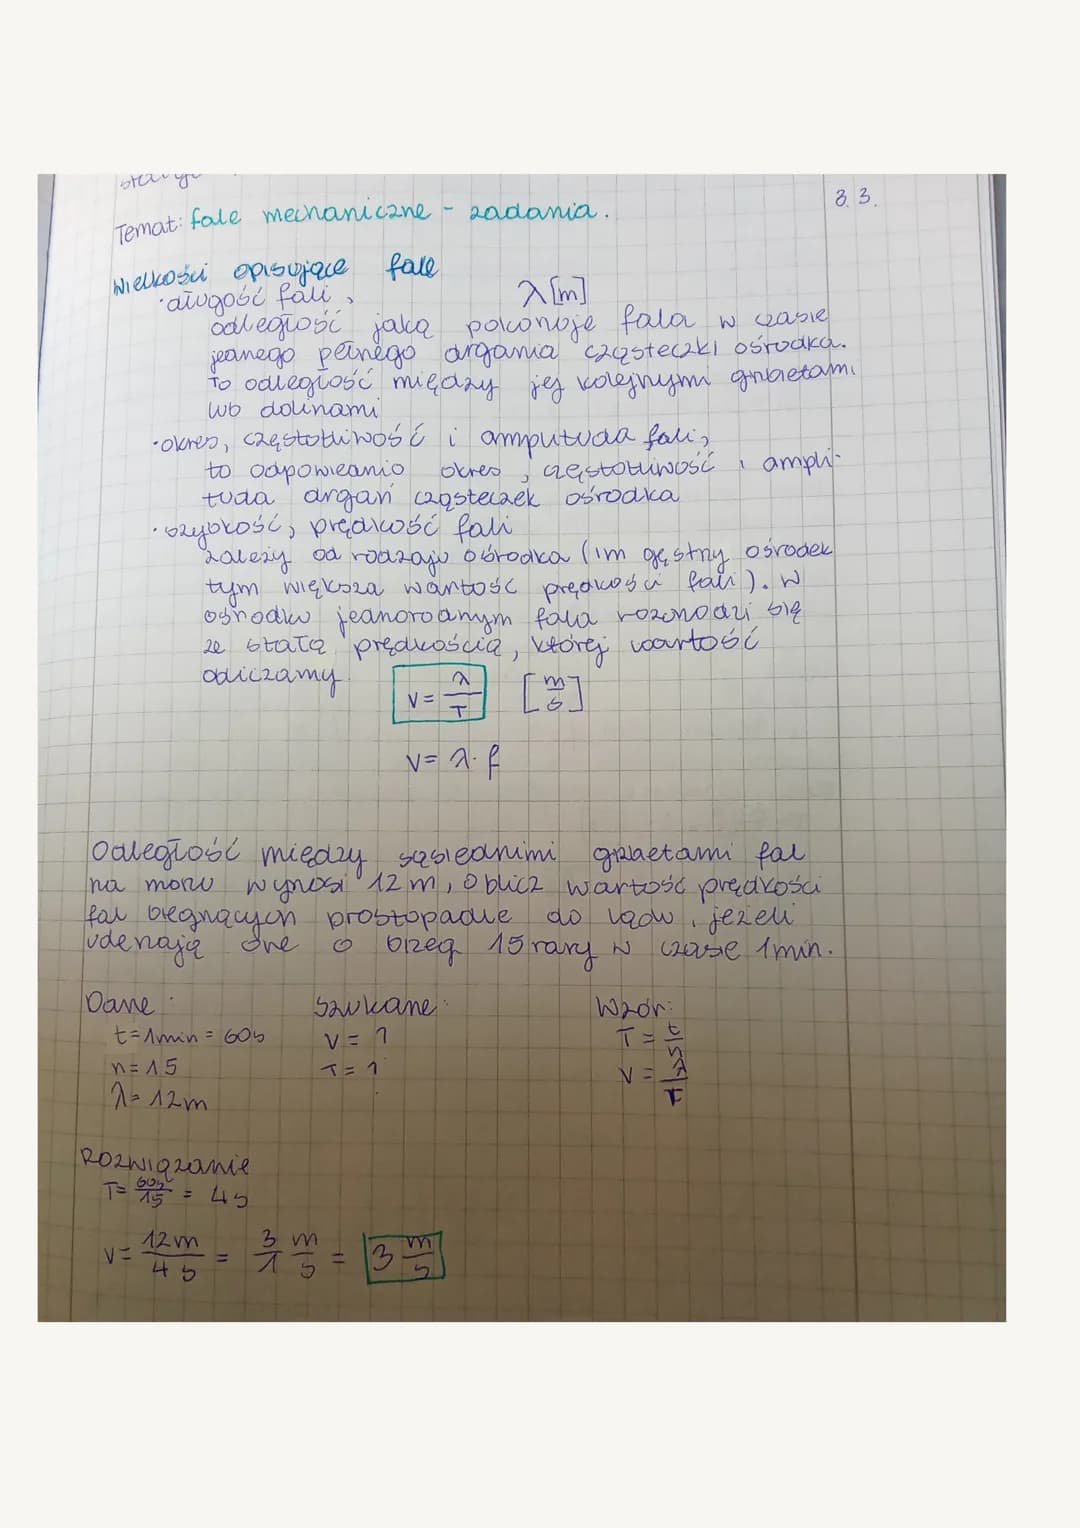 3.3.
Temat: fale mechaniczne - zadania.
Wielkości opisujące fale
• długość fali, λ [m]
odległość jaką pokonuje fala w czasie
jednego pełnego drgania cząsteczki ośrodka.
To odległość między jej kolejnymi grzbietami
lub dolinami
• okres, częstotliwość i amplituda fali,
to odpowiednio okres, częstotliwość i ampli-
tuda drgań cząsteczek ośrodka
• szybkość, prędkość fali
zależy od rodzaju ośrodka (im gęstszy ośrodek
tym większa wartość prędkości fali). W
ośrodku jednorodnym fala rozchodzi się
ze stałą prędkością, której wartość
obliczamy
v = λ/T [m/s]
v = λ · f
Odległość między sąsiednimi grzbietami fal
na morzu wynosi 12 m, Oblicz wartość prędkości
fal biegnących prostopadle do lądu, jeżeli
uderzają one o brzeg 15 razy w czasie 1 min.
Dane: Szukane: Wzór:
t = 1 min = 60s v = ? T = t/n
n = 15 T = ? v = λ/T
λ = 12m
Rozwiązanie
T = 60s/15 = 4s
v = 12m/4s = 3/1 m/s = 3 m/s